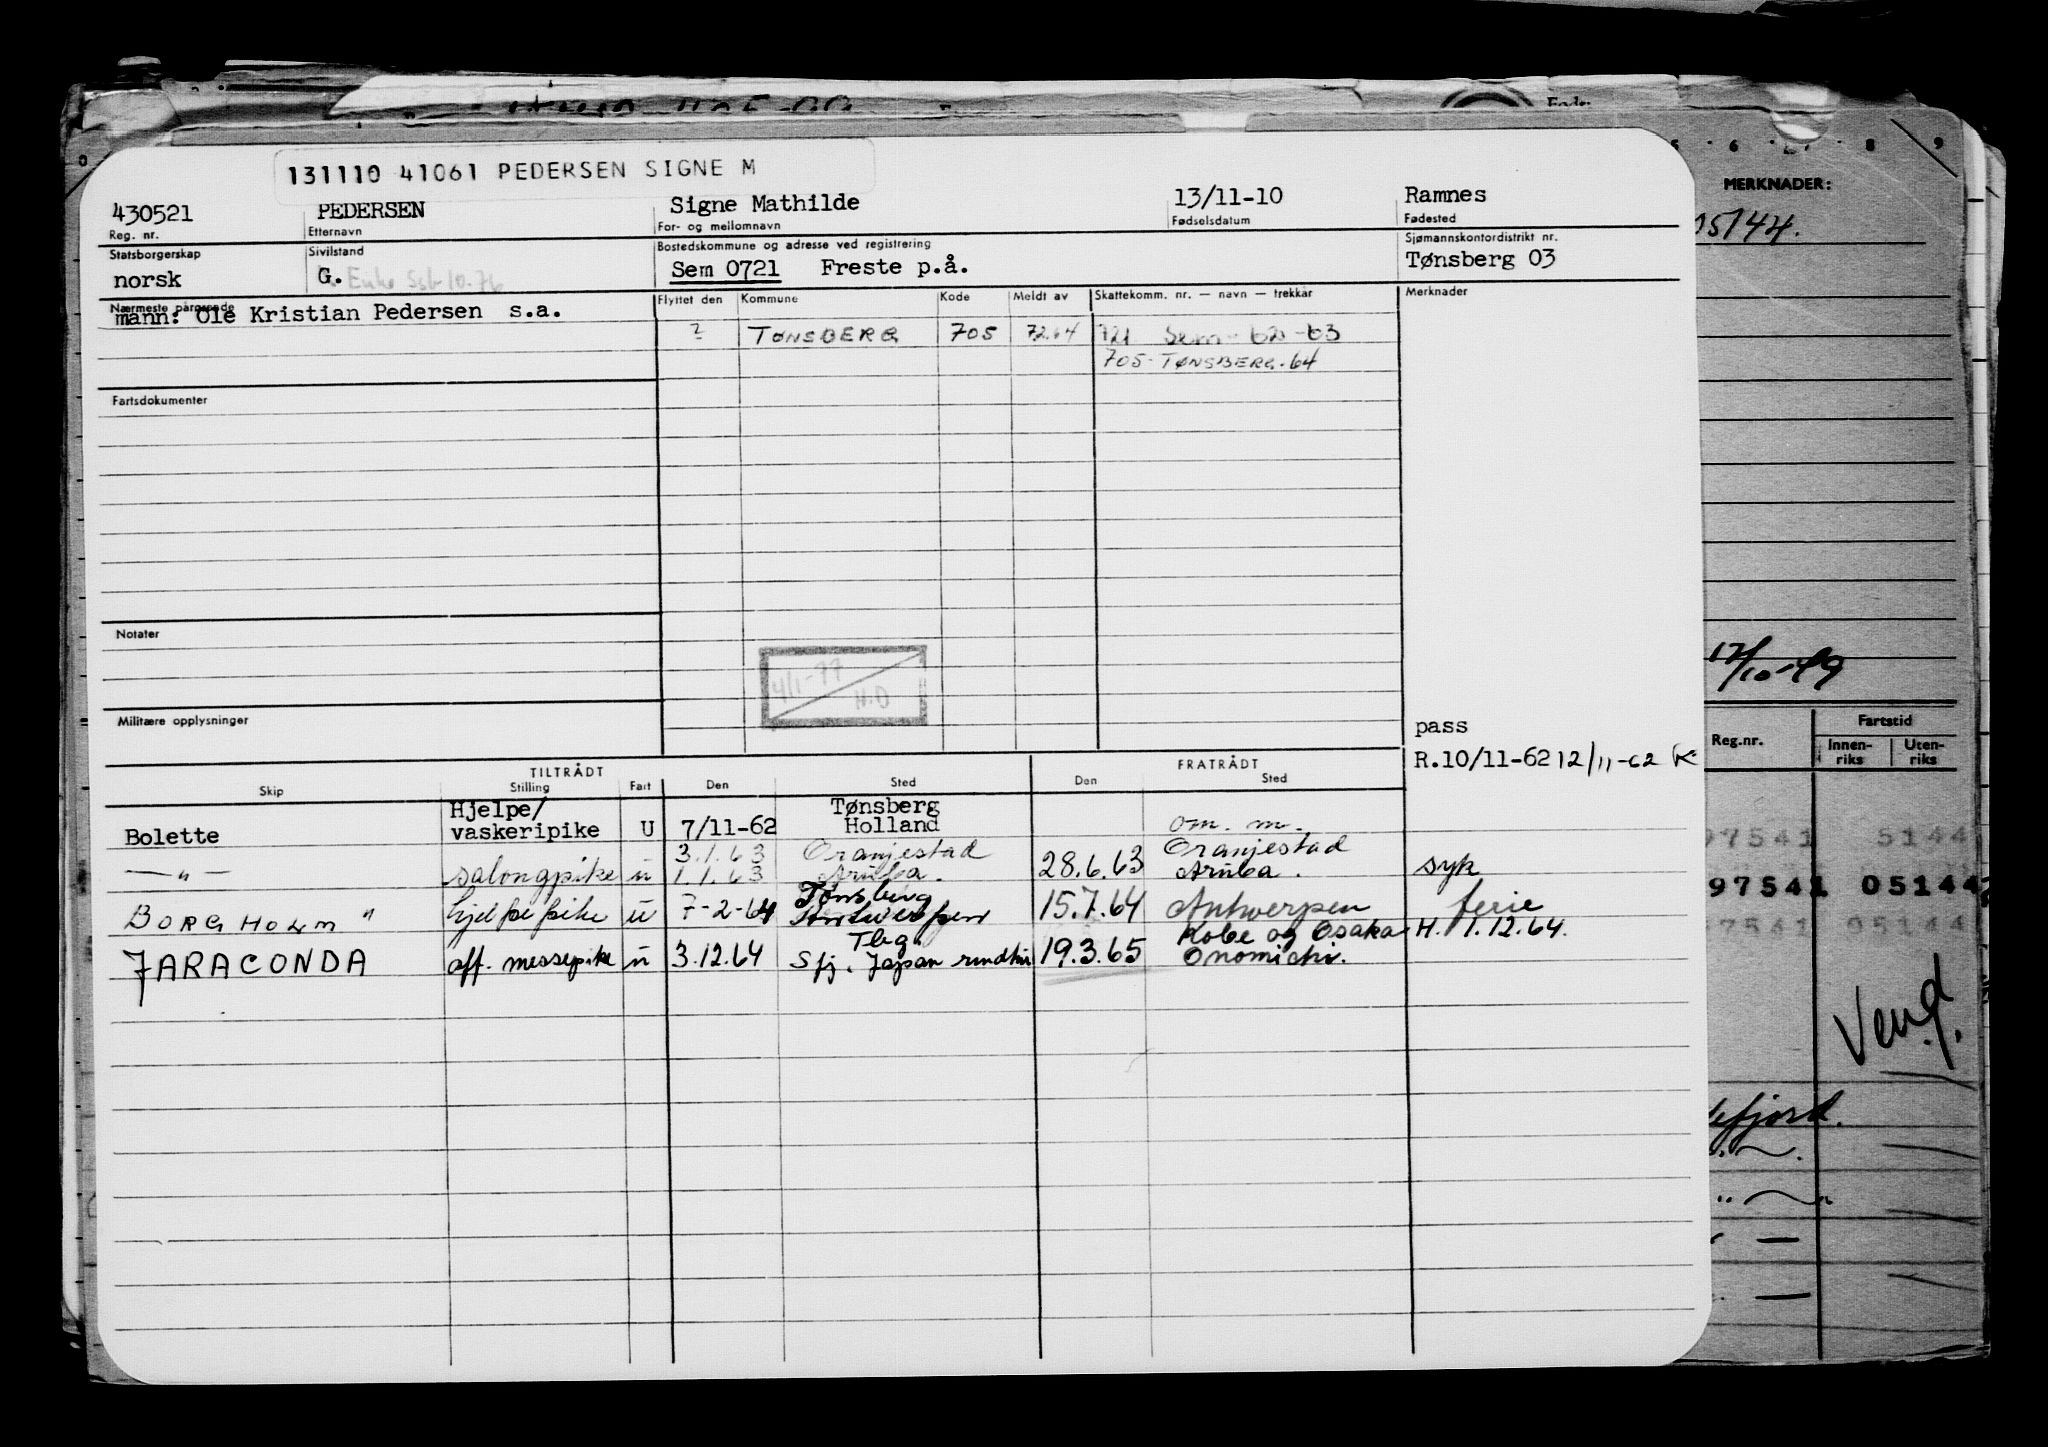 131110 41061 PEDERSEN SIGNE M
430521 PEDERSEN Signe Mathilde 13/11-10 Ramnes
Reg. nr. Etternavn For- og mellomnavn Fødselsdatum Fødested
Statsborgerskap Sivilstand Bostedskommune og adresse ved registrering Sjømannskontordistrikt nr.
norsk G. Enke Ssb 10.76 Sem 0721 Freste p.å. Tønsberg 03
Nærmeste pårørende Flyttet den Kommune Kode Meldt av Skattekomm. nr. — navn — trekkår Merknader
mann: Ole Kristian Pedersen s.a.
? TØNSBERG 705 7264 721 Sem - 62 - 63
705 - TØNSBERG. 64
Fartsdokumenter
Notater
4/1-77
H.O
Militære opplysninger
pass
R.10/11-62 12/11-62 K
TILTRÅDT FRATRÅDT
Skip Stilling Fart Den Sted Den Sted
Bolette Hjelpe/ vaskeripike U 7/11-62 Tønsberg Holland om. m.
— " — salongpike u 3.1.63 1.1.63 Oranjestad Aruba. 28.6.63 Oranjestad Aruba. syk
BORGHOLM " hjelpepike u 7-2-64 Tønsberg Antwerpen 15.7.64 Antwerpen ferie
JARACONDA off. messepike u 3.12.64 Tbg. Sfj. Japan 19.3.65 Kobe og Osaka Onomichi. H. 1.12.64.
Føds:
6 8 9
MERKNADER:
05144.
12/10-49
Reg.nr. Fartstid
Innen-riks Uten-riks
97541 5144
97541 05144
97541 05144
Vend.
efjord.